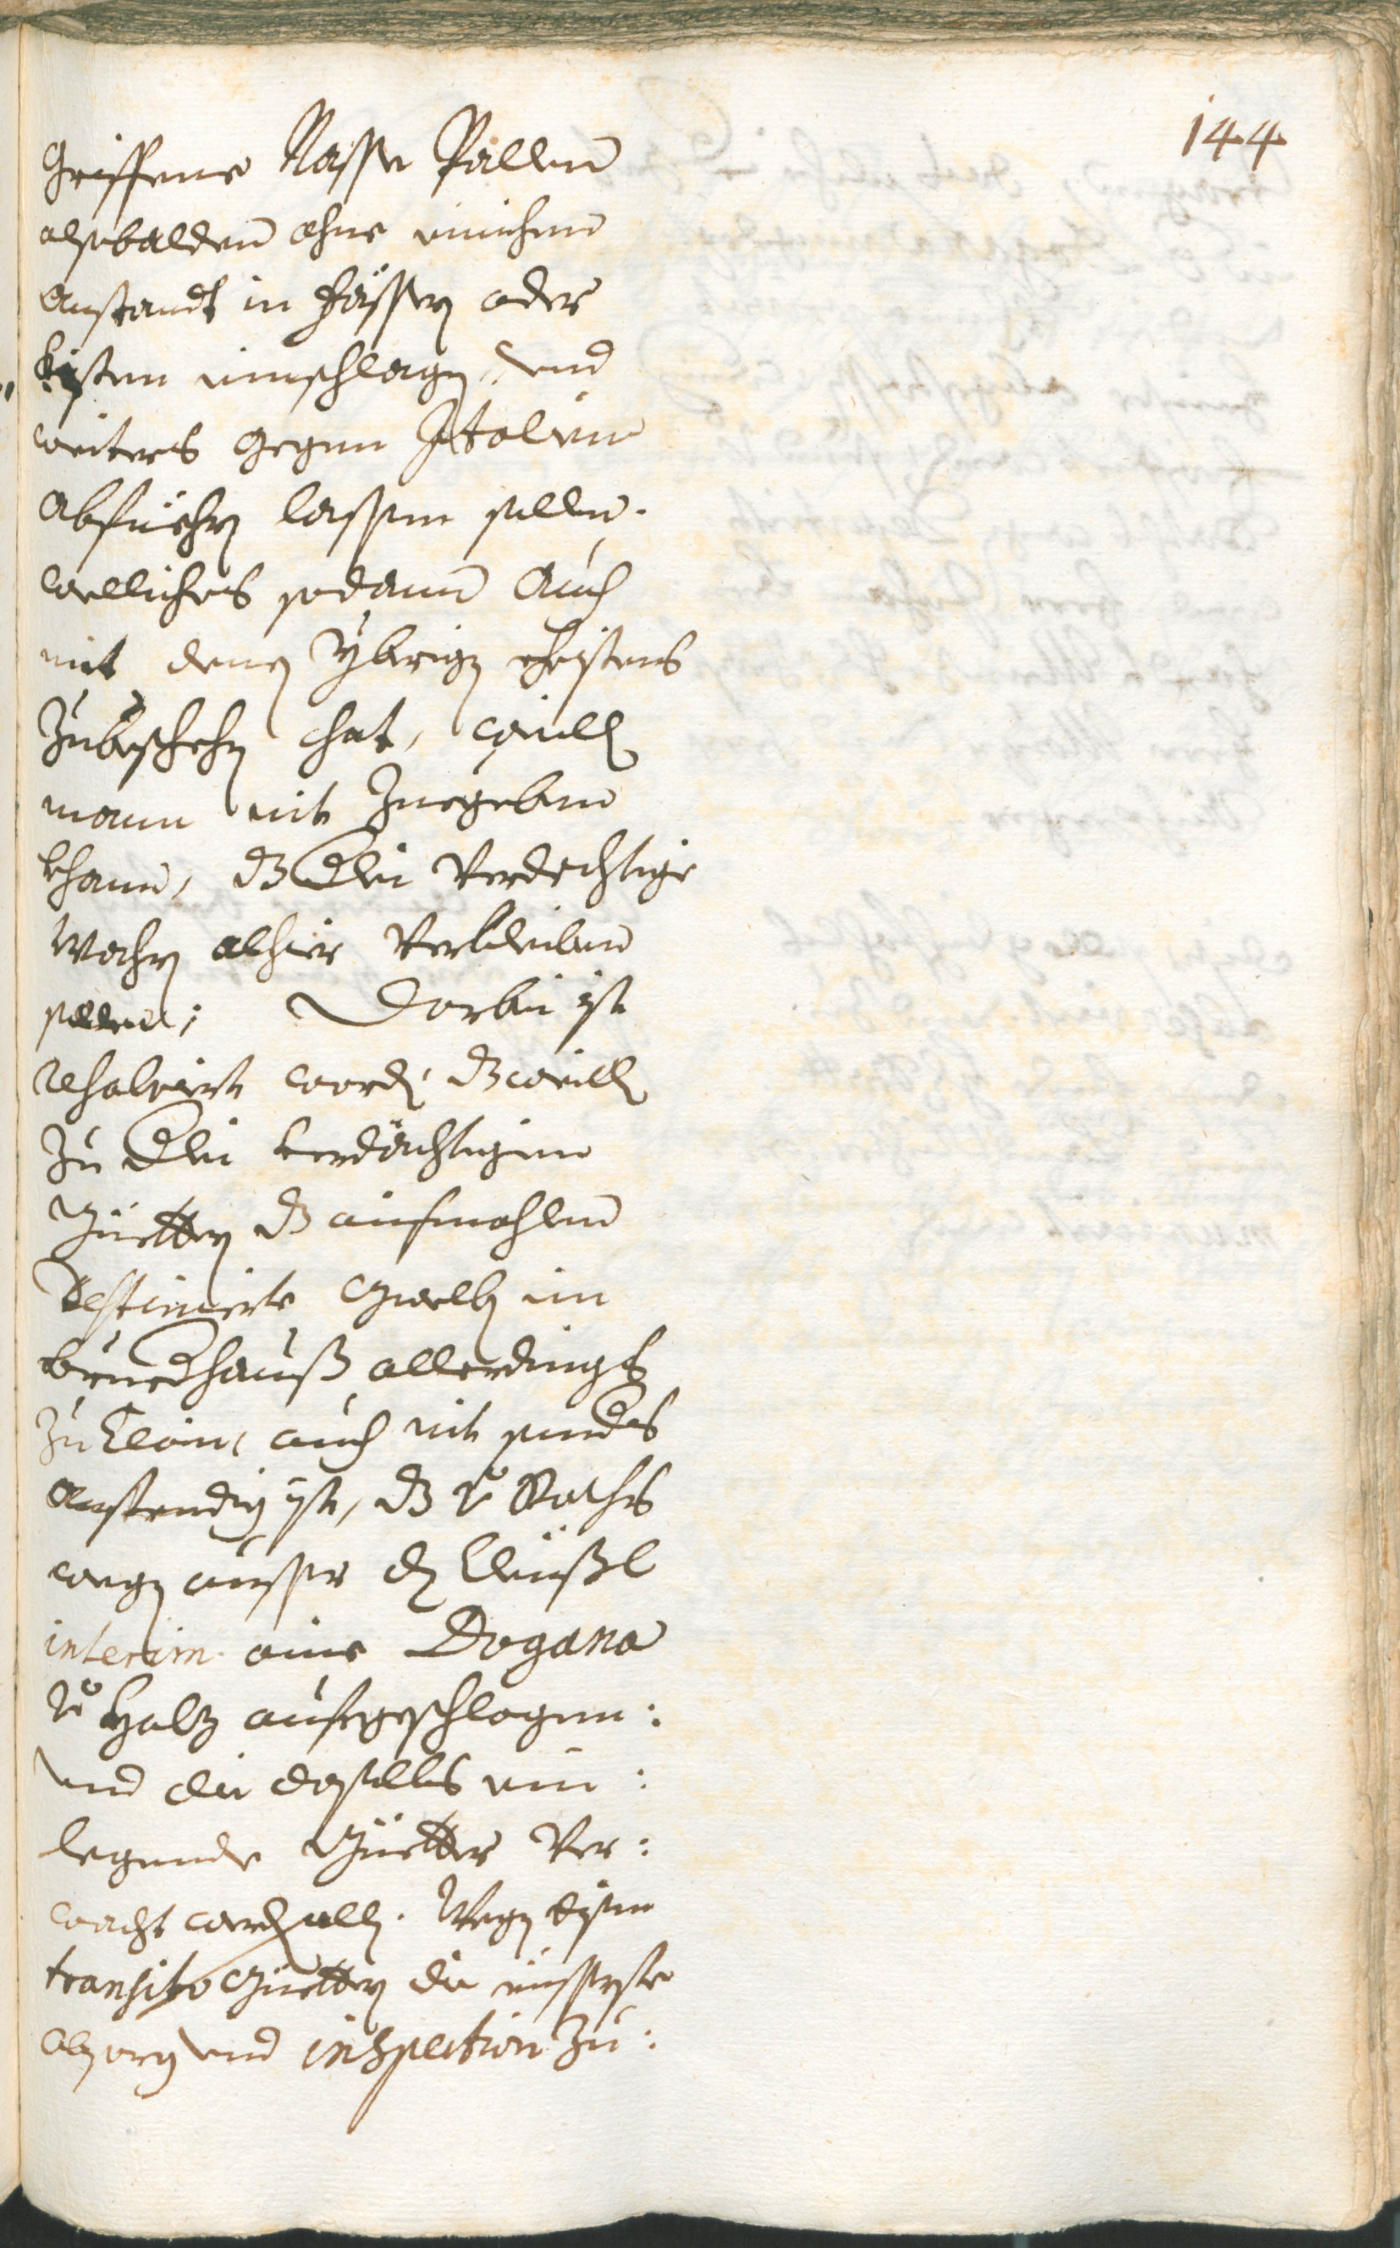 144
Griffene Nasse Pallen
alsobalden ohne einichen
Anstandt in Fässer oder
Kisten einschlagen, und
weiters gegen Italien
Abfüehrn lassen sollen.
welliches sodann Auch
mit denen Ybrigen ehistens
Zubeschehen hat, weill
mann nit Zuegeben
khann, dz die Verdechtige
Wahrn alhier Verbleiben
sollen; Darbei ist
resolviert worden, dz weillen
Zu die verdächtigen
Güetter dz aufmahlen
destinierte Gwelb im
Pruckhauß allerdings
Zu klain, auch nit sonders
Anstendig ist, dz von Raths
wegen ausser der Cleußl
interim aine Dogana
von Holz aufgeschlagen:
und die daselbs ein:
legende Güetter Ver:
wacht werden sollen. Wegen disen
transito Güettern die eisseriste
obsorg und inspection Zu: